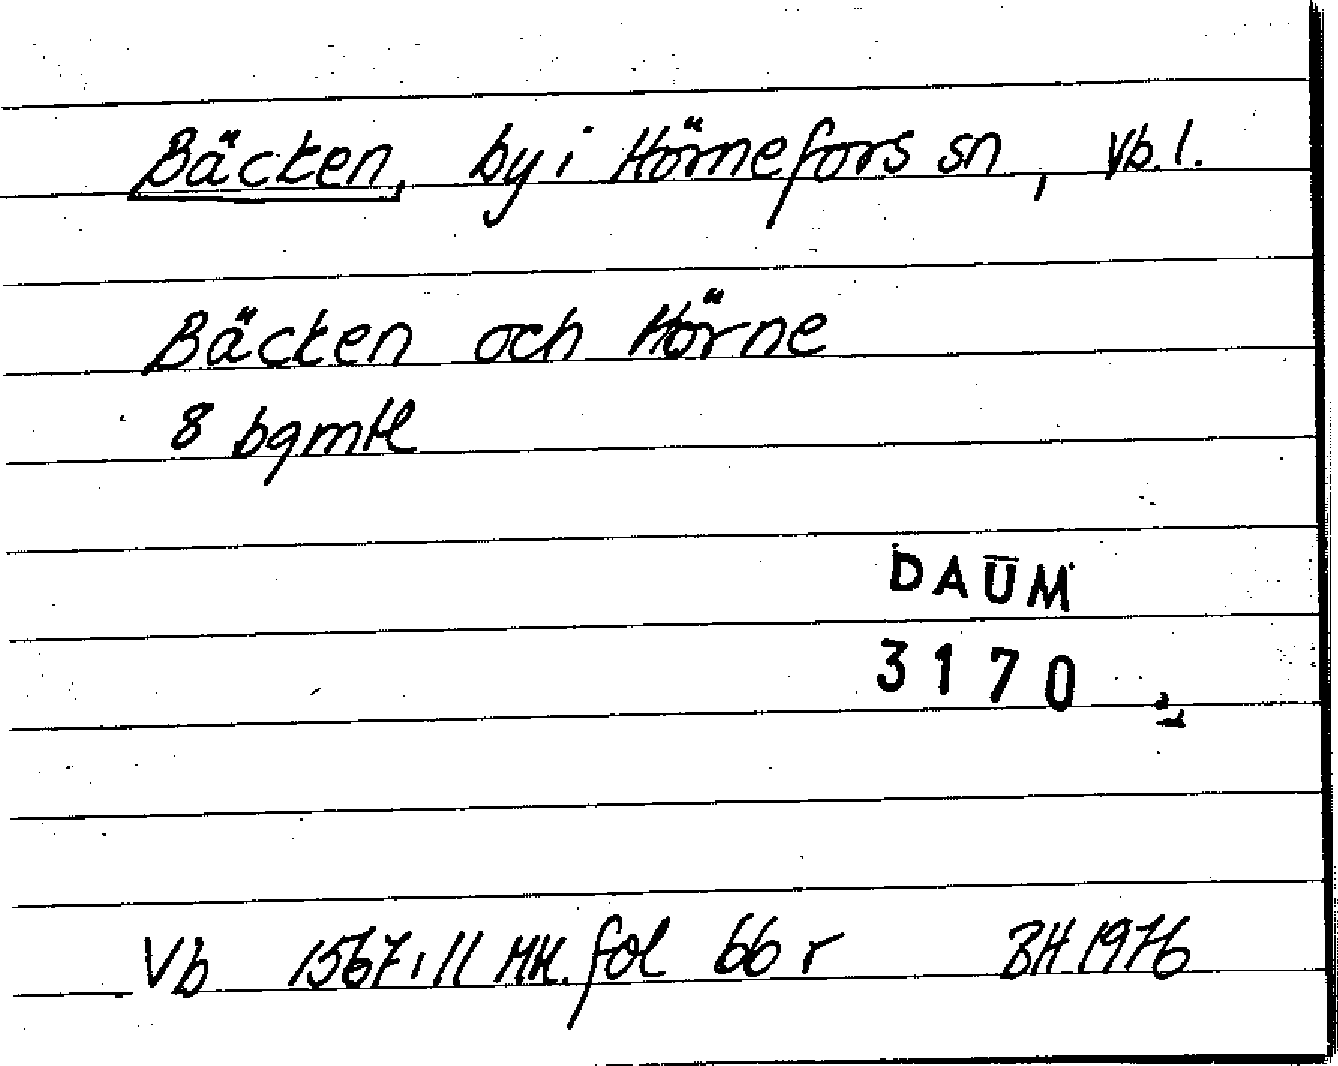 Bäcken, by i Hörnefors sn, Vb. l.
Bäcken och Hörne
8 bgmtl
DAUM
3170
Vb 1567:11 MK. fol 66 r BH 1976